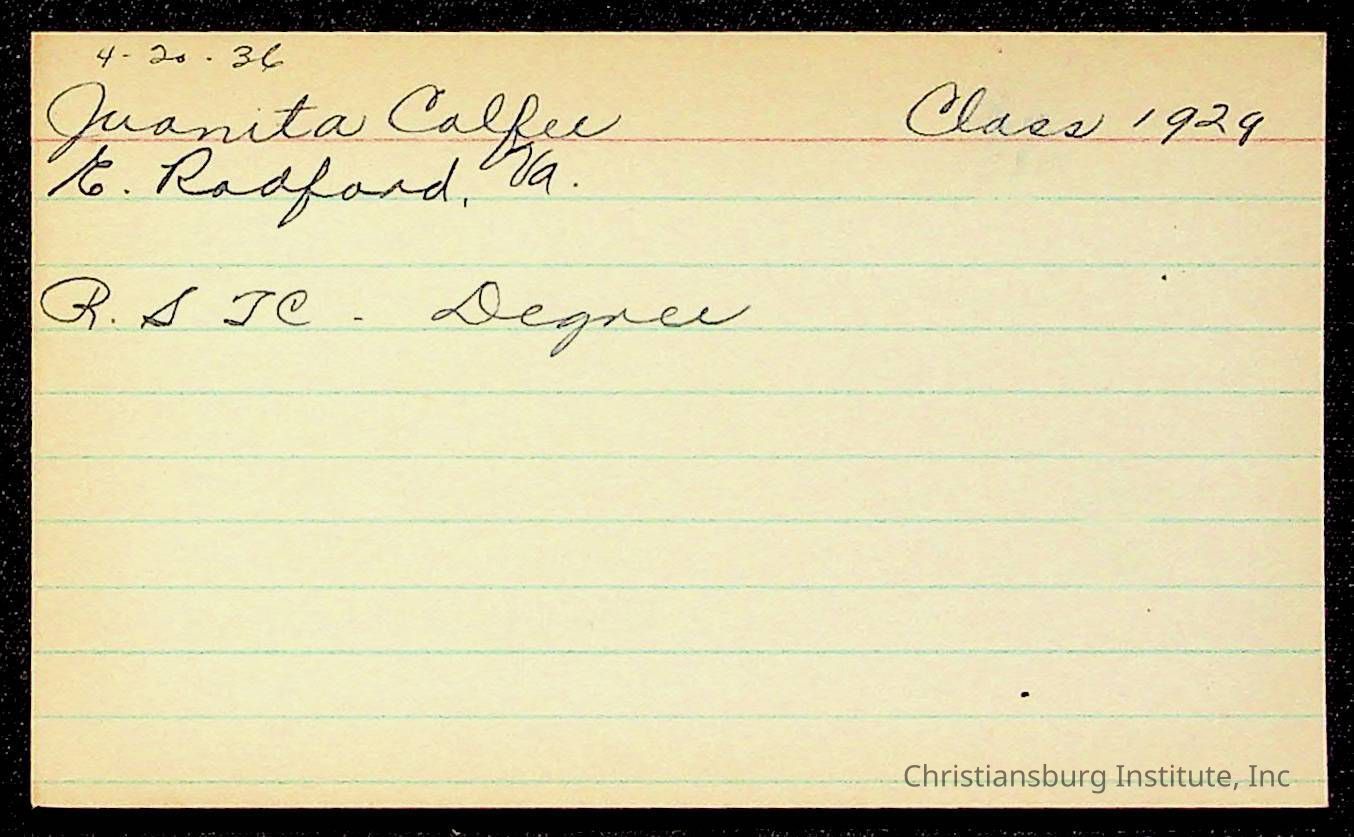 4-20-36
Juanita Calfee Class 1929
E. Radford, Va.
R. S T C - Degree
Christiansburg Institute, Inc